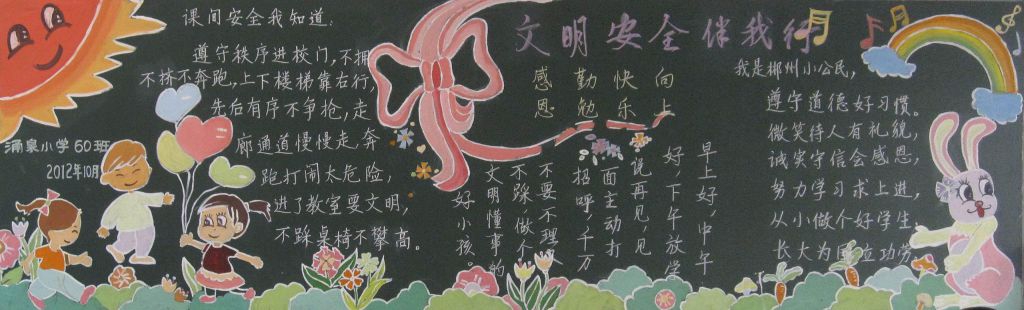 课间安全我知道:
遵守秩序进校门,不拥
不挤不奔跑,上下楼梯靠右行,
先后有序不争抢,走
廊通道慢慢走,奔
跑打闹太危险,
进了教室要文明,
不踩桌椅不攀高。
涌泉小学60班
2012年10月
文明安全伴我行
感恩
勤勉
快乐
向上
早上好,中午
好,下午放学
说再见,见
面主动打
招呼,千万
不要不理人
不踩做个
文明懂事的
好小孩。
我是郴州小公民,
遵守道德好习惯。
微笑待人有礼貌,
诚实守信会感恩,
努力学习求上进,
从小做个好学生。
长大为国立功劳